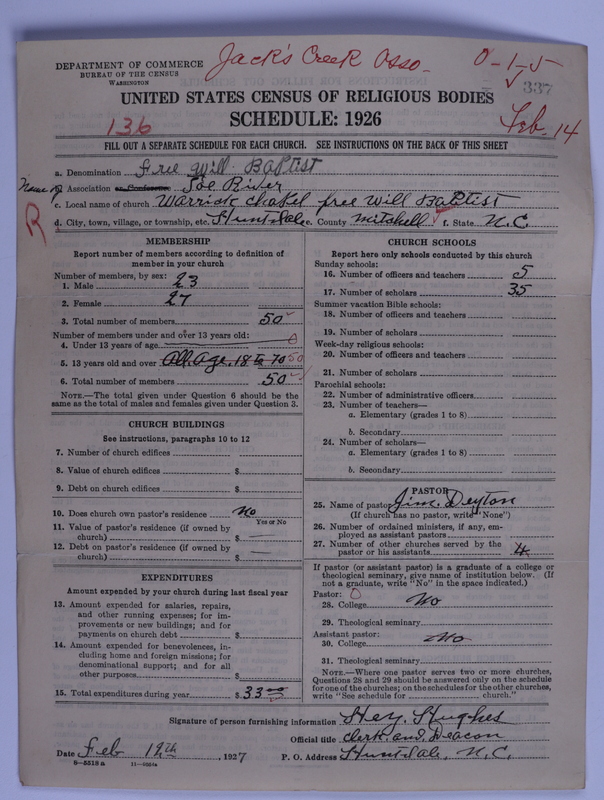 DEPARTMENT OF COMMERCE
BUREAU OF THE CENSUS
WASHINGTON
Jack's Creek Asso.
0-1-5
337
UNITED STATES CENSUS OF RELIGIOUS BODIES
SCHEDULE: 1926
136
Feb. 14
FILL OUT A SEPARATE SCHEDULE FOR EACH CHURCH. SEE INSTRUCTIONS ON THE BACK OF THIS SHEET
a. Denomination Free Will Baptist
Name of
b. Association or Conference Toe River
c. Local name of church Warrick chapel free Will Baptist
R
d. City, town, village, or township, etc. Huntdale e. County Mitchell f. State N.C.
MEMBERSHIP
Report number of members according to definition of
member in your church
Number of members, by sex:
1. Male 23
2. Female 27
3. Total number of members 50
Number of members under and over 13 years old:
4. Under 13 years of age 0
5. 13 years old and over All. age. 18 to 70 50
6. Total number of members 50
NOTE.—The total given under Question 6 should be the
same as the total of males and females given under Question 3.
CHURCH BUILDINGS
See instructions, paragraphs 10 to 12
7. Number of church edifices
8. Value of church edifices $
9. Debt on church edifices $
10. Does church own pastor's residence No
Yes or No
11. Value of pastor's residence (if owned by
church) $ —
12. Debt on pastor's residence (if owned by
church) $ —
EXPENDITURES
Amount expended by your church during last fiscal year
13. Amount expended for salaries, repairs,
and other running expenses; for im-
provements or new buildings; and for
payments on church debt $
14. Amount expended for benevolences, in-
cluding home and foreign missions; for
denominational support; and for all
other purposes $
15. Total expenditures during year $ 33.00
CHURCH SCHOOLS
Report here only schools conducted by this church
Sunday schools:
16. Number of officers and teachers 5
17. Number of scholars 35
Summer vacation Bible schools:
18. Number of officers and teachers
19. Number of scholars
Week-day religious schools:
20. Number of officers and teachers
21. Number of scholars
Parochial schools:
22. Number of administrative officers
23. Number of teachers—
a. Elementary (grades 1 to 8)
b. Secondary
24. Number of scholars—
a. Elementary (grades 1 to 8)
b. Secondary
PASTOR
25. Name of pastor Jim. Deyton
(If church has no pastor, write "None")
26. Number of ordained ministers, if any, em-
ployed as assistant pastors
27. Number of other churches served by the
pastor or his assistants 4
If pastor (or assistant pastor) is a graduate of a college or
theological seminary, give name of institution below. (If
not a graduate, write "No" in the space indicated.)
Pastor: 0
28. College No
29. Theological seminary
Assistant pastor:
30. College No
31. Theological seminary
NOTE.—Where one pastor serves two or more churches,
Questions 28 and 29 should be answered only on the schedule
for one of the churches; on the schedules for the other churches,
write "See schedule for church."
Signature of person furnishing information Hey. Hughes
Official title Clerk and Deacon
Date Feb 12th, 1927
P. O. Address Huntdale, N.C.
8—5518 a